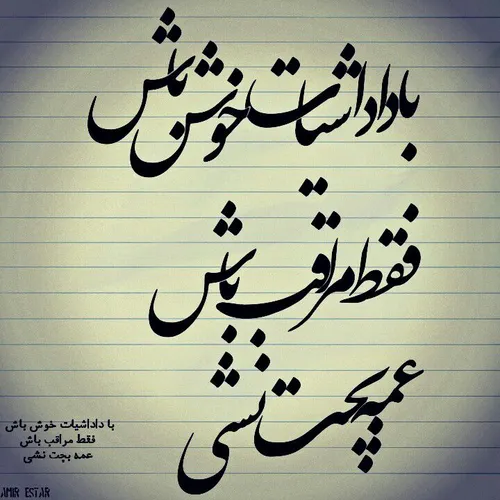 با داداشیات خوش باش
فقط مراقب باش
عمه بچت نشی
با داداشیات خوش باش
فقط مراقب باش
عمه بچت نشی
AMIR ESTAR